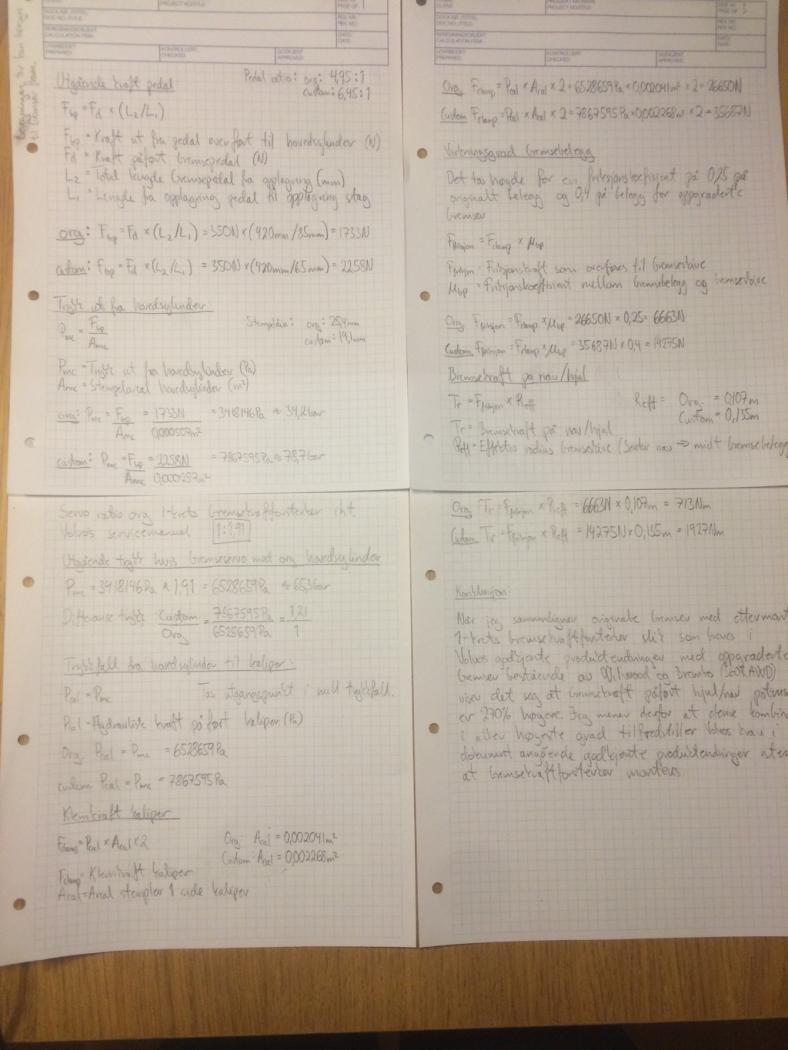 PAGE OF 1
Utgående kraft pedal
Pedal ratio: org: 4,95:1
custom: 6,45:1
Fbp = Fd × (L2/L1)
Fbp = Kraft ut fra pedal overført til hovedsylinder (N)
Fd = Kraft påført bremsepedal (N)
L2 = Total lengde bremsepedal fra opplagring (mm)
L1 = Lengde fra opplagring pedal til opplagring stag
org: Fbp = Fd × (L2/L1) = 350N × (420mm/85mm) = 1733N
custom: Fbp = Fd × (L2/L1) = 350N × (420mm/65mm) = 2258N
Trykk ut fra hovedsylinder:
Pmc = Fbp / Amc
Stempeldia: org: 25,4mm
custom: 19,1mm
Pmc = Trykk ut fra hovedsylinder (Pa)
Amc = Stempelareal hovedsylinder (m²)
org: Pmc = Fbp / Amc = 1733N / 0,000507m² = 3418146Pa ≈ 34,2bar
custom: Pmc = Fbp / Amc = 2258N / 0,000287m² = 7867595Pa ≈ 78,7bar
Servo ratio org 1-krets bremsekraftforsterker iht.
Volvos servicemanual 1:1,91
Utgående trykk hvis bremseservo mot org hovedsylinder
Pmc = 3418146Pa × 1,91 = 6528659Pa ≈ 65,3bar
Differanse trykk Custom / Org = 7867595Pa / 6528659Pa = 1,21 / 1
Trykkfall fra hovedsylinder til kaliper:
Pcal = Pmc Tas utgangspunkt i null trykkfall.
Pcal = Hydraulisk kraft påført kaliper (Pa)
Org. Pcal = Pmc = 6528659Pa
custom Pcal = Pmc = 7867595Pa
Klemkraft kaliper
Fclamp = Pcal × Acal × 2
Org: Acal = 0,002041m²
Custom: Acal = 0,002268m²
Fclamp = Klemkraft kaliper
Acal = Areal stempler 1 side kaliper
PAGE OF 3
Org Fclamp = Pcal × Acal × 2 = 6528659Pa × 0,002041m² × 2 = 26650N
Custom Fclamp = Pcal × Acal × 2 = 7867595Pa × 0,002268m² × 2 = 35687N
Virkningsgrad bremsebelegg
Det tas høyde for en friksjonskoeffisient på 0,25 på
originalt belegg og 0,4 på belegg for oppgraderte
bremser
Ffriksjon = Fclamp × μbp
Ffriksjon = Friksjonskraft som overføres til bremseskive
μbp = Friksjonskoeffisient mellom bremsebelegg og bremseskive
Org Ffriksjon = Fclamp × μbp = 26650N × 0,25 = 6663N
Custom Ffriksjon = Fclamp × μbp = 35687N × 0,4 = 14275N
Bremsekraft på nav/hjul
Tr = Ffriksjon × Reff
Reff = Org. = 0,107m
Custom = 0,135m
Tr = Bremsekraft på nav/hjul
Reff = Effektiv radius bremseskive (Senter nav → midt bremsebelegg
Org Tr = Ffriksjon × Reff = 6663N × 0,107m = 713Nm
Custom Tr = Ffriksjon × Reff = 14275N × 0,135m = 1927Nm
Konklusjon:
Når jeg sammenligner originale bremser med ettermont
1-krets bremsekraftforsterker slik som kreves i
Volvos godkjente produktendringer med oppgraderte
bremser bestående av Wilwood og Brembo
viser det seg at bremsekraft påført hjul/nav
er 270% høyere. Jeg mener derfor at denne kombin
i aller høyeste grad tilfredstiller Volvos krav i
dokument angående godkjente produktendringer
at bremsekraftforsterker monteres